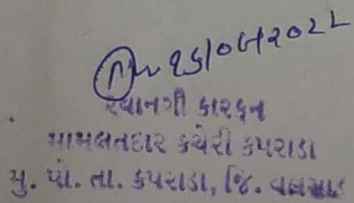 ૧૬/૦૬/૨૦૨૨
રવાનગી કારકુન
મામલતદાર કચેરી કપરાડા
મુ. પો. તા. કપરાડા, જિ. વલસાડ